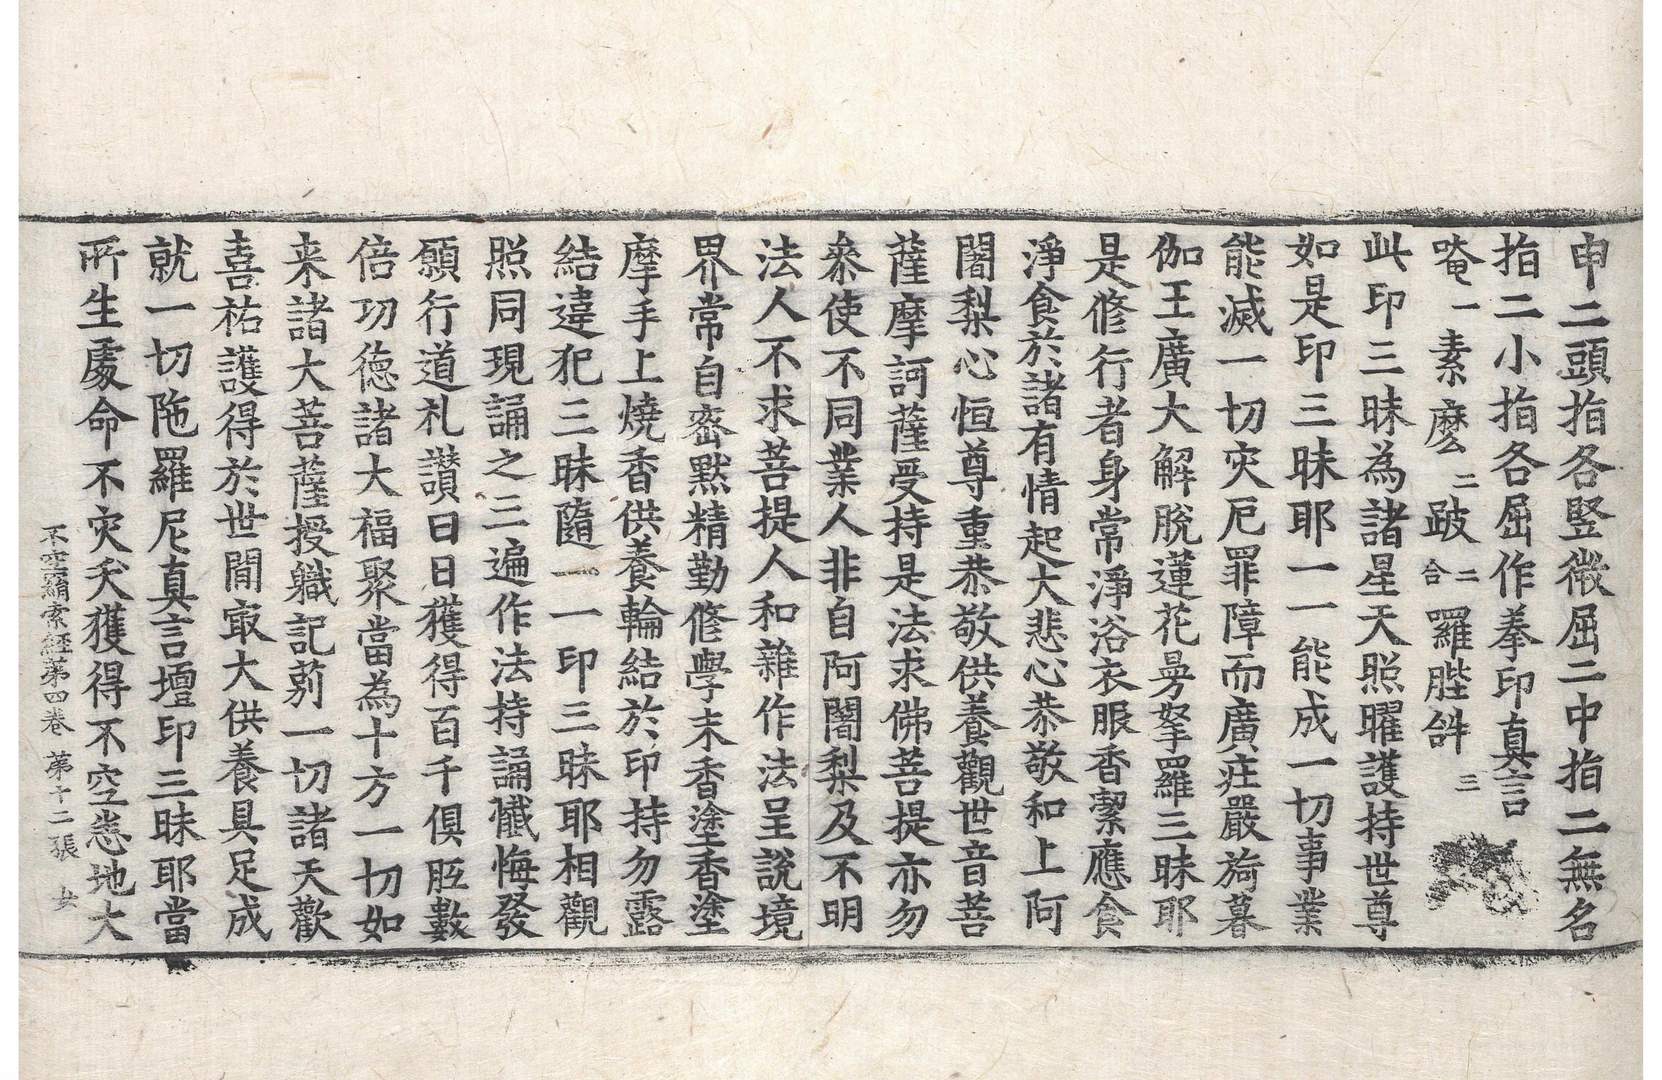 申二頭指各竪微屈二中指二無名
指二小指各屈作拳印真言
唵一素麽二跛二合羅陛䤈三
此印三昧為諸星天照曜護持世尊
如是印三昧耶一一能成一切事業
能滅一切灾厄罪障而廣庄嚴旖暮
伽王廣大解脫蓮花曼拏羅三昧耶
是修行者身常淨浴衣服香潔應食
淨食於諸有情起大悲心恭敬和上阿
闍梨心恒尊重恭敬供養觀世音菩
薩摩訶薩受持是法求佛菩提亦勿
叅使不同業人非自阿闍梨及不明
法人不求菩提人和雜作法呈說境
界常自密默精勤修學末香塗香塗
摩手上燒香供養輪結於印持勿露
結違犯三昧隨一一印三昧耶相觀
照同現誦之三遍作法持誦懺悔發
願行道礼讚日日獲得百千俱胝數
倍功德諸大福聚當為十方一切如
来諸大菩薩授軄記莂一切諸天歡
喜祐護得於世間冣大供養具足成
就一切陁羅尼真言壇印三昧耶當
所生處命不灾夭獲得不空悉地大
不空羂索經第四卷 第十二張 女